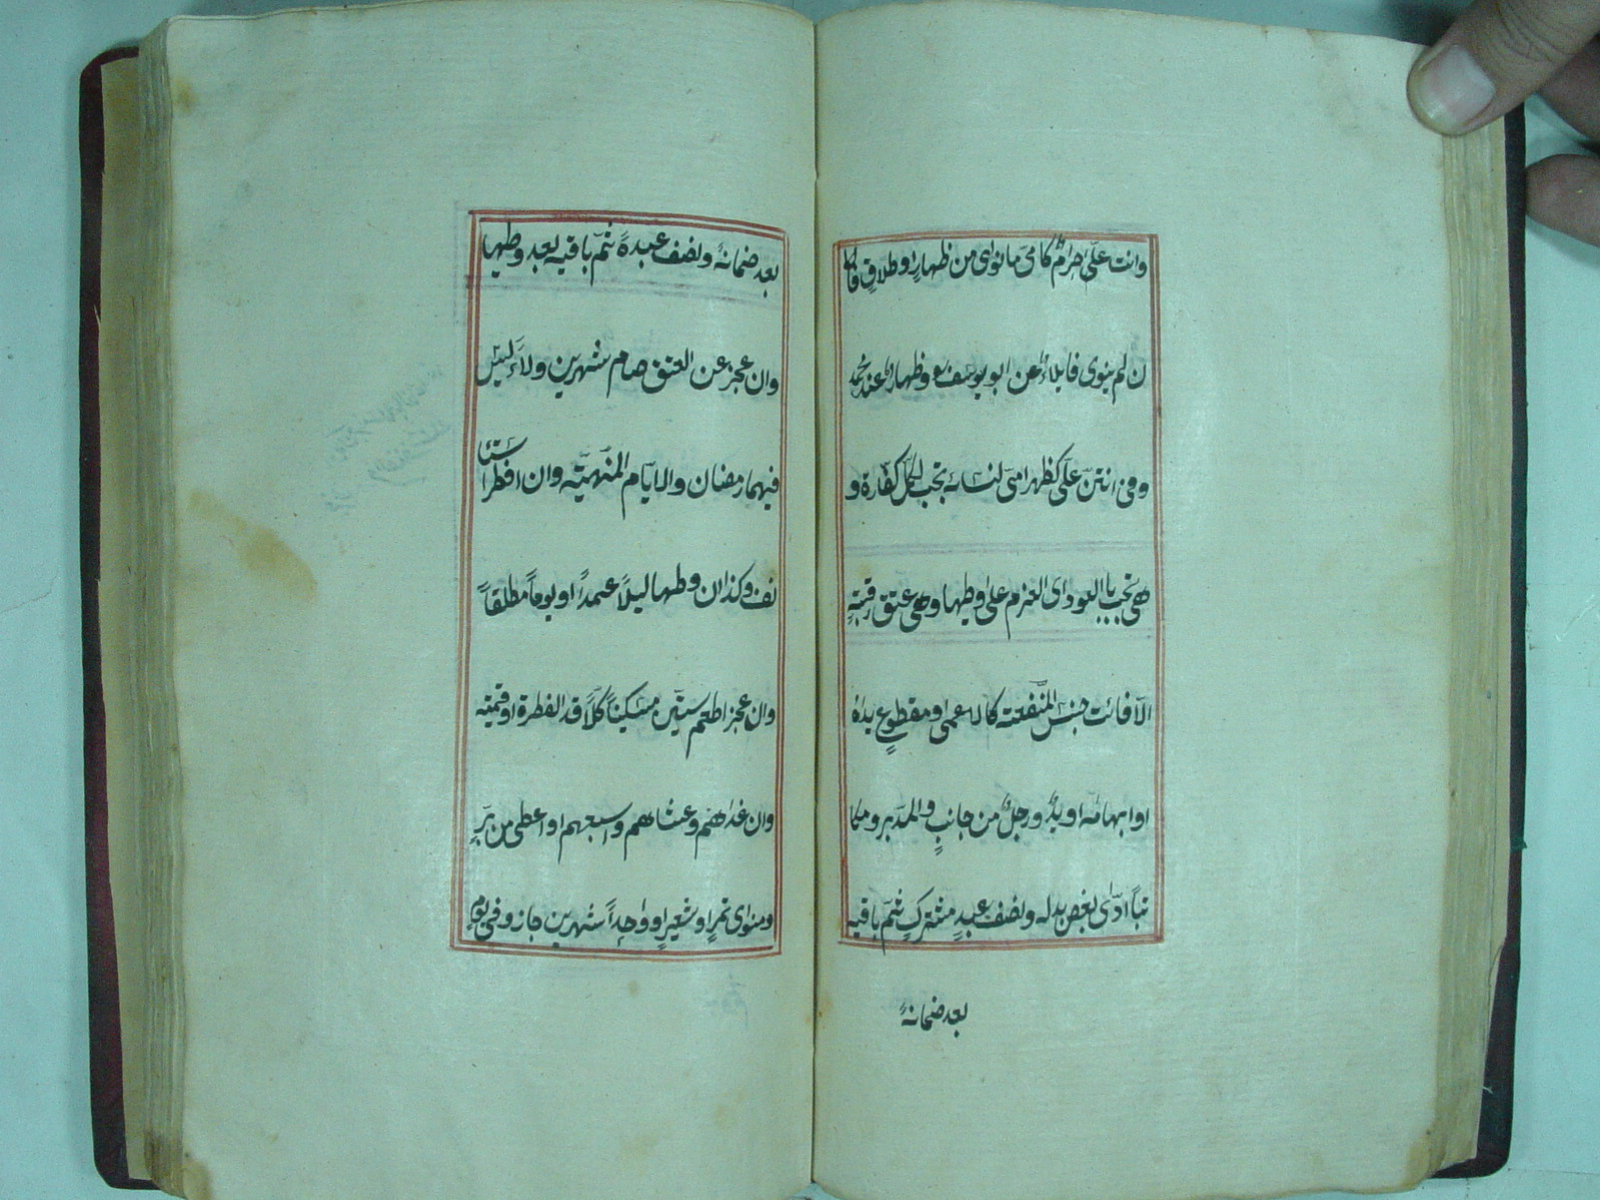 وانت علىّ حرام كامى ما نوى من ظهارٍ او طلاقٍ فا
ن لم ينوى فايلاء عن ابو يوسف وظهار عند محمد
وفى انتن علىّ كظهر امى لنسائه تجب لكل كفارة و
هى تجب بالعود اى العزم على وطيها وهى عتق رقبةٍ
الا فائت جنس المنفعة كالاعمى او مقطوعٍ يداه
او ابهاماه او يد ورجل من جانبٍ والمدبر ومكا
تباً ادّى بعض بدله ونصف عبدٍ مشترك ثم باقيه
بعد ضمانه
بعد ضمانه ونصف عبده ثم باقيه بعد وطيها
وان عجز عن العتق صام شهرين ولاءً ليس
فيهما رمضان والا يام المنهية وان افطر استا
نف وكذا ان وطيها ليلاً عمداً او يوماً مطلقاً
وان عجز اطعم ستين مسكيناً كلاً قدر الفطرة او قيمته
وان غداهم وعشاهم واشبعهم او اعطى من برّ
ومنوى تمرٍ او شعيرٍ او واحداً شهرين جاز وفى يوم